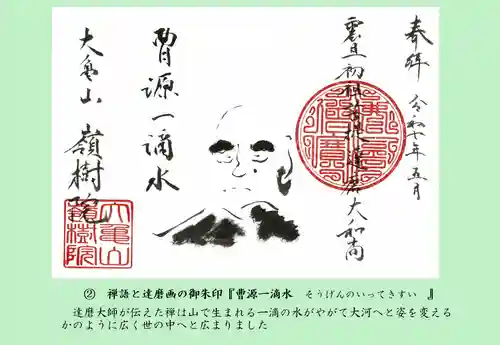 奉拝 令和七年五月
震旦初祖菩提達磨大和尚
曹源一滴水
大亀山 嶺樹院
大亀山
嶺樹院
② 禅語と達磨画の御朱印『曹源一滴水 そうげんのいってきすい 』
達磨大師が伝えた禅は山で生まれる一滴の水がやがて大河へと姿を変える
かのように広く世の中へと広まりました